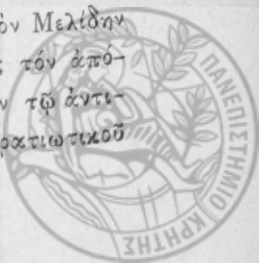 όν Μελίδην
ς τόν ἀπό-
ν τῷ ἀντι-
ρατιωτικοῦ
ΠΑΝΕΠΙΣΤΗΜΙΟ ΚΡΗΤΗΣ